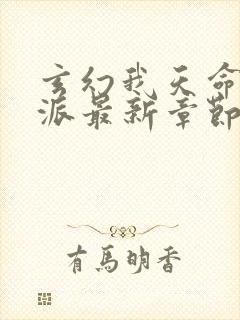 玄幻我天命
派最新章節
有馬明香